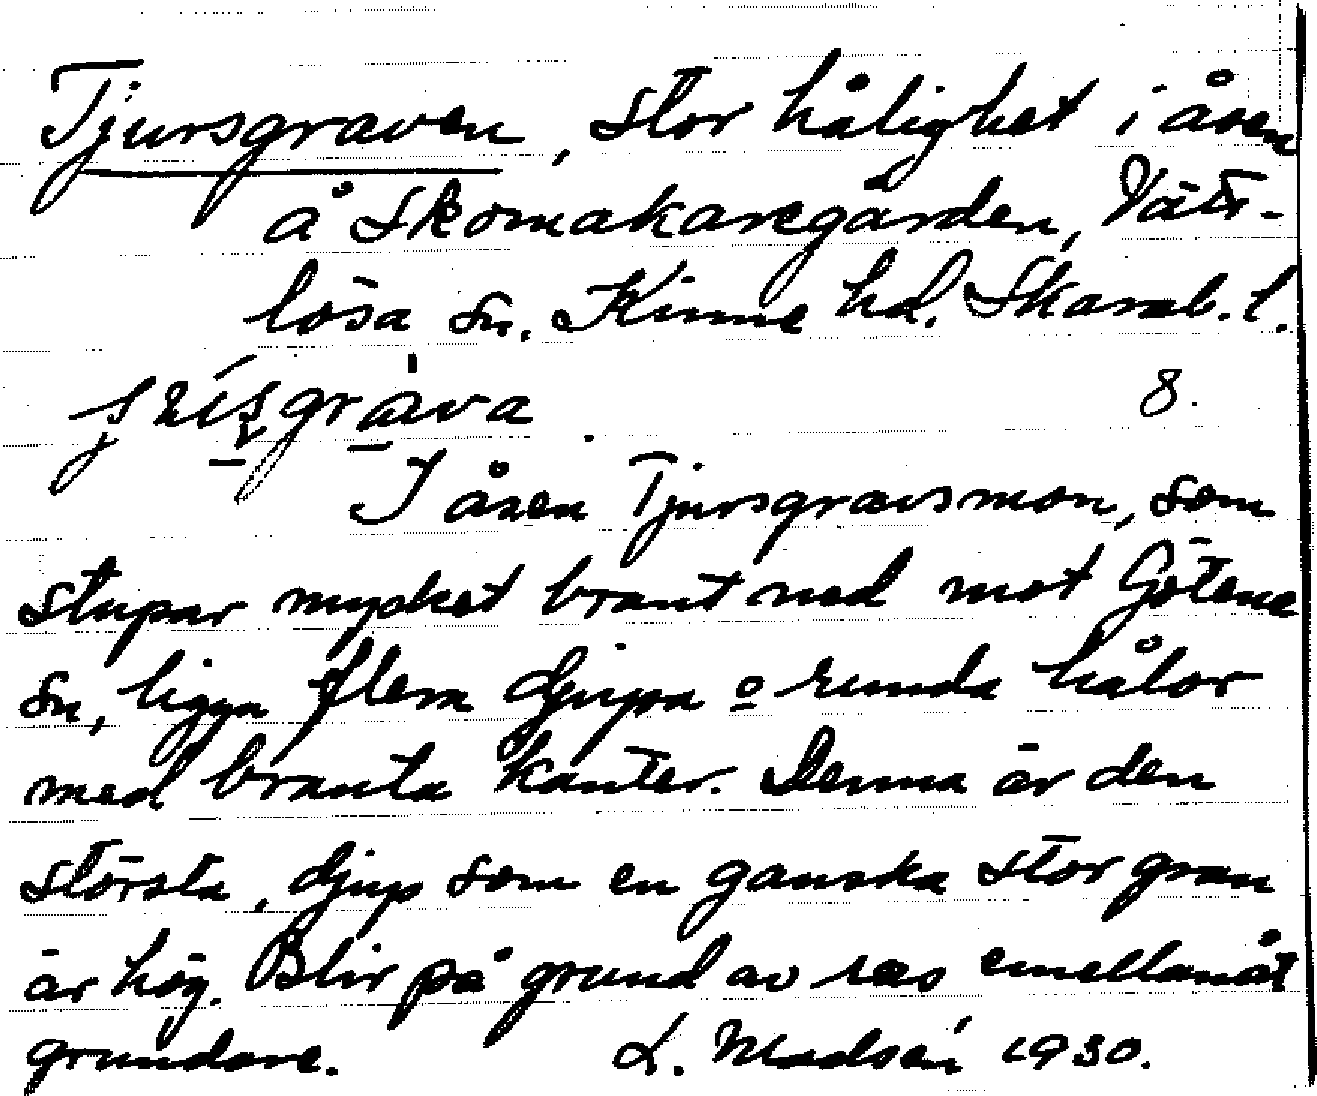 Tjursgraven, stor hålighet i åsen
å Skomakaregården, Vätt-
lösa sn. Kinne hd. Skarab. l.
8.
I åsen Tjursgravsmon, som
stupar mycket brant ned mot Götene
sn, ligga flera djupa o runda hålor
med branta kanter. Denna är den
största, djup som en ganska stor gran
är hög. Blir på grund av ras emellanåt
grundare. L. Madsén 1930.